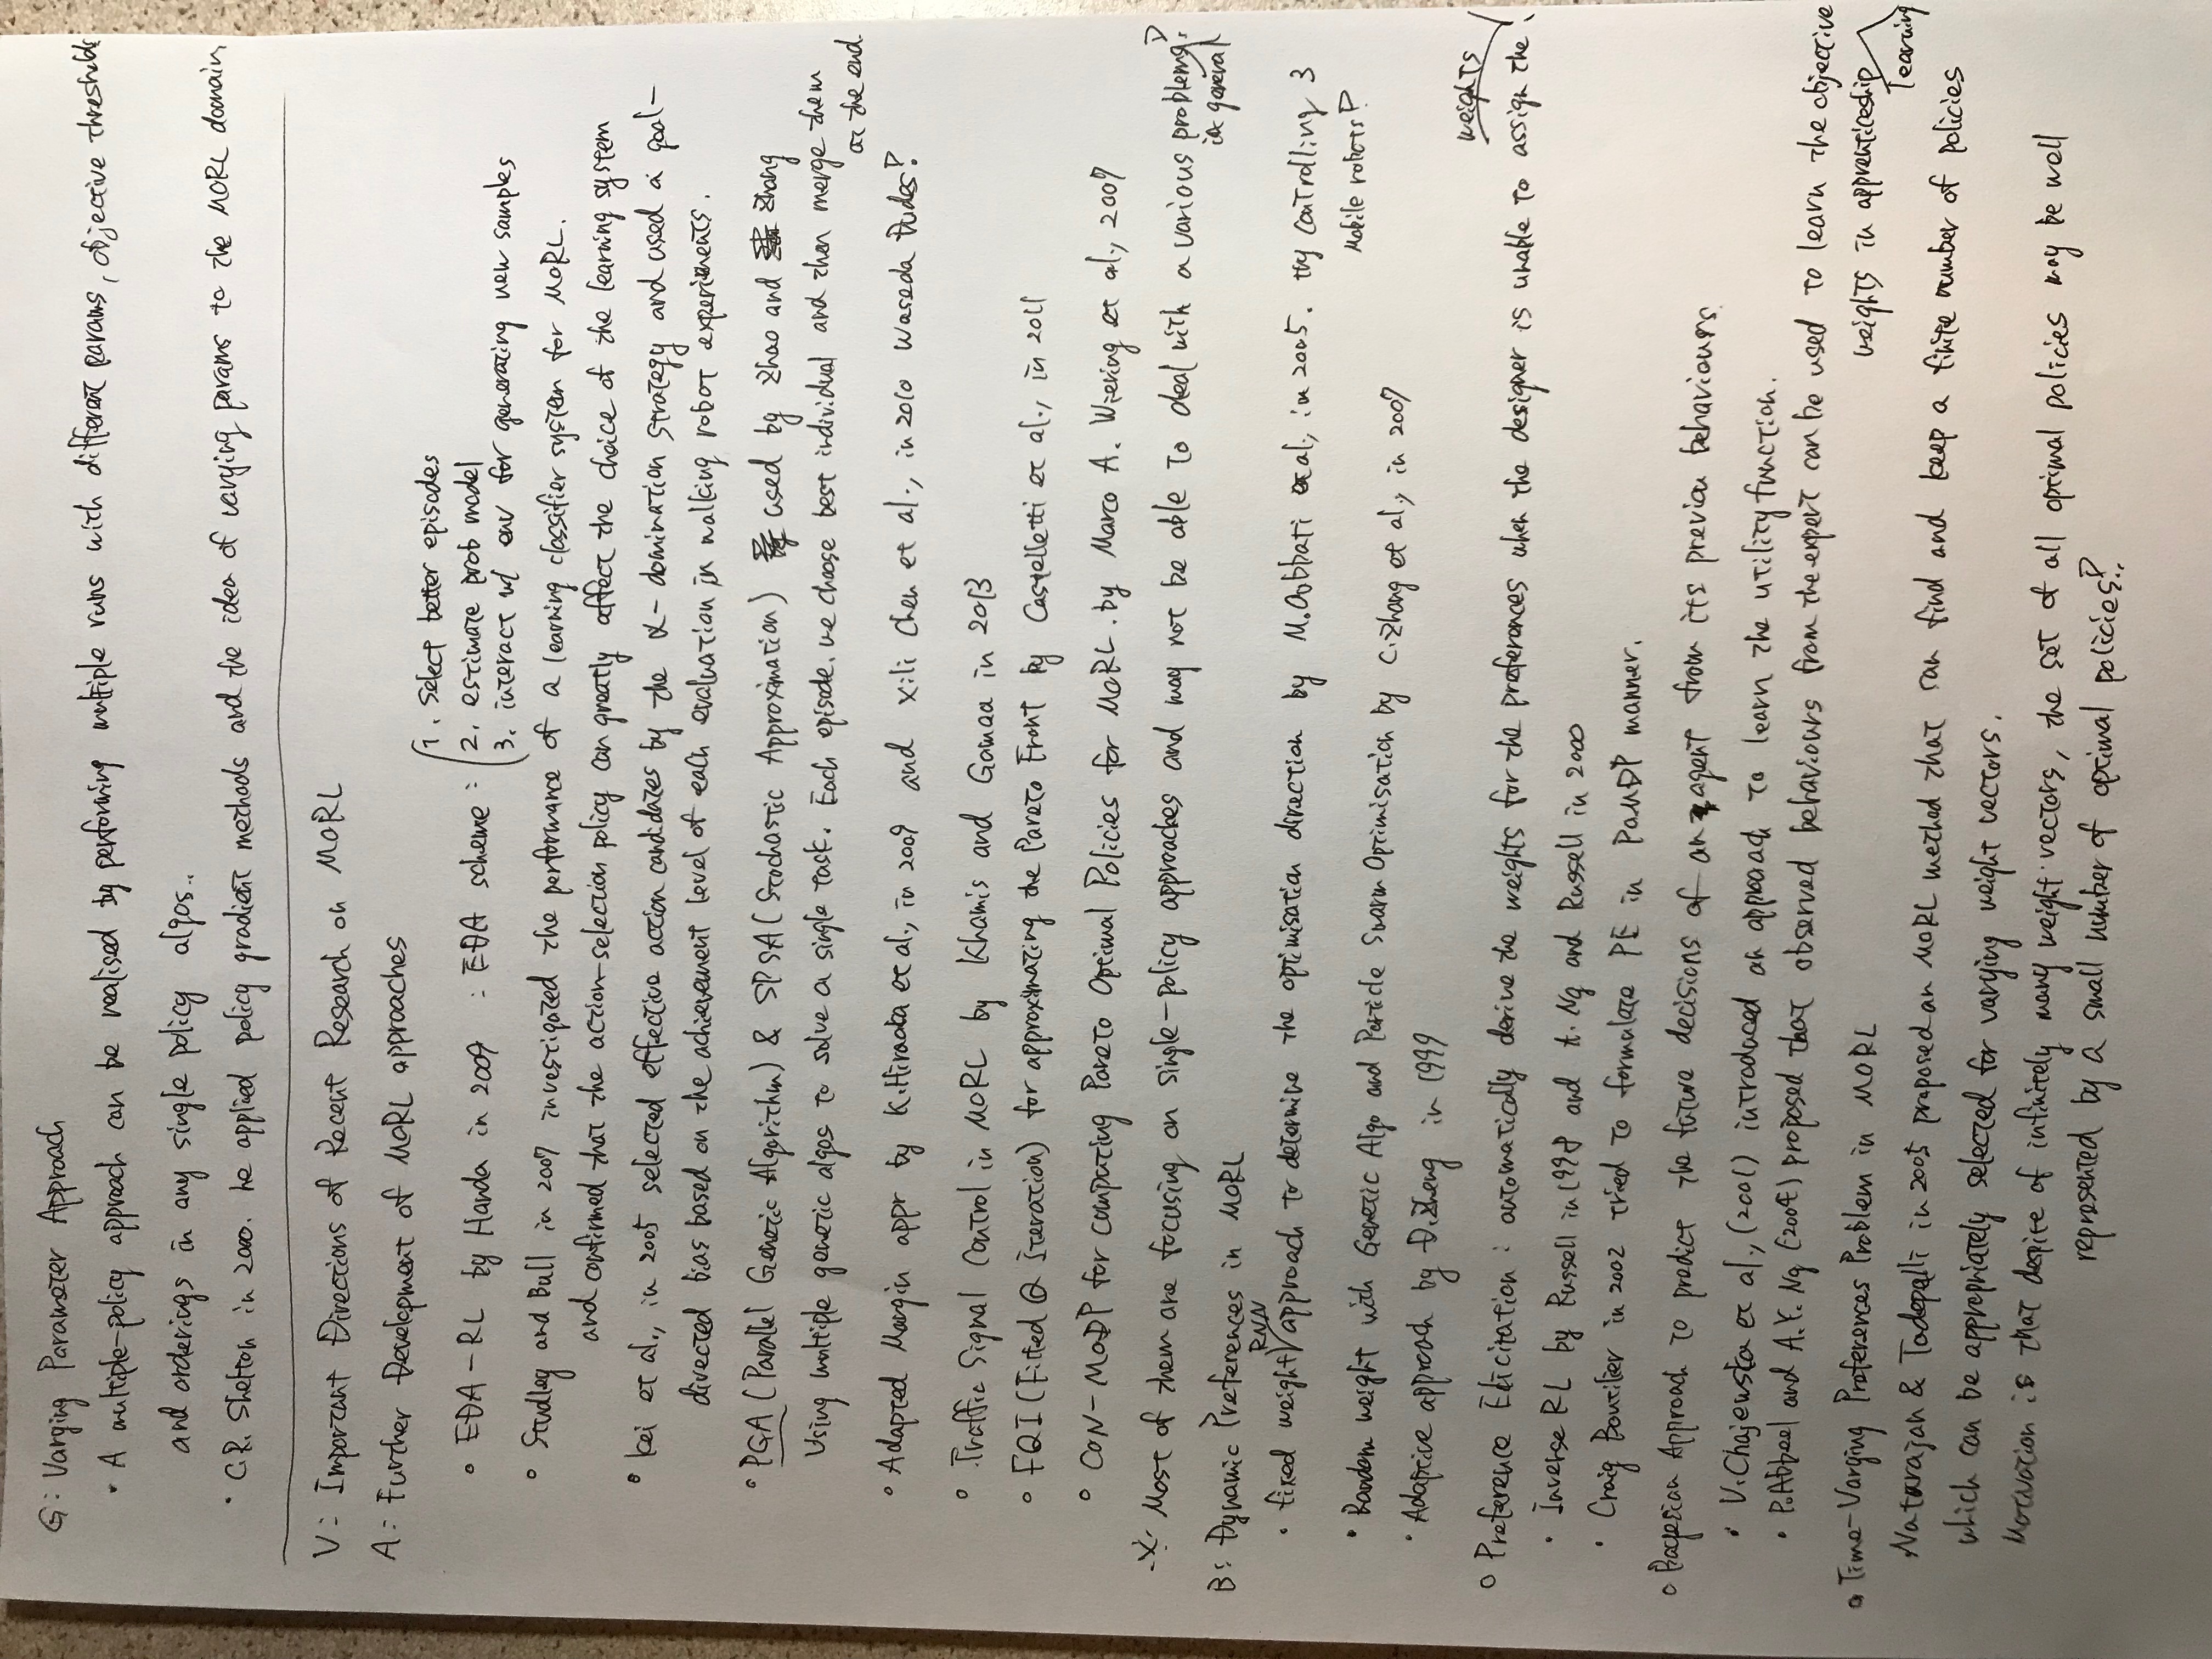 G: Varying Parameter Approach
• A multiple-policy approach can be realised by performing multiple runs with different params, objective thresholds
and orderings in any single policy algos..
• C.R. Shelton in 2000. he applied policy gradient methods and the idea of varying params to the MORL domain,
V: Important Directions of Recent Research on MORL
A: Further Development of MORL approaches
1. Select better episodes
◦ EDA-RL by Handa in 2009 : EDA scheme : 2. estimate prob model
3. interact w/ env for generating new samples
◦ Studley and Bull in 2007 investigated the performance of a learning classifier system for MORL.
and confirmed that the action-selection policy can greatly affect the choice of the learning system
◦ Kei et al., in 2005 selected effective action candidates by the α-domination strategy and used a goal-
directed bias based on the achievement level of each evaluation in walking robot experiments.
◦ PGA (Parallel Genetic Algorithm) & SPSA (Stochastic Approximation) used by Zhao and Zhang
Using multiple genetic algos to solve a single task. Each episode. we choose best individual and then merge them
at the end.
◦ Adapted Margin appr by K.Hiraoka et al., in 2009 and Xili Chen et al., in 2010 Waseda Dudes!?
◦ Traffic Signal Control in MORL by Khamis and Gomaa in 2013
◦ FQI (Fitted Q Iteration) for approximating the Pareto Front by Castelletti et al., in 2011
◦ CON-MODP for computing Pareto Optimal Policies for MORL. by Marco A. Wiering et al., 2007
※ Most of them are focusing on single-policy approaches and may not be able to deal with a various problems!?
in general
B: Dynamic Preferences in MORL
RNN
• fixed weight approach to determine the optimisation direction by M.Oubbati et al., in 2005. try controlling 3
Mobile robots!?
• Random weight with Genetic Algo and Particle Swarm Optimisation by C.Zhang et al., in 2007
• Adaptive approach by D.Zheng in 1999
weights
◦ Preference Elicitation : automatically derive the weights for the preferences when the designer is unable to assign the.
• Inverse RL by Russell in 1998 and A. Ng and Russell in 2000
• Craig Boutilier in 2002 tried to formulate PE in PoMDP manner.
◦ Bayesian Approach to predict the future decisions of an agent from its previou behaviours.
• U.Chajewska et al., (2001) introduced an approach to learn the utility function.
• P.Abbeel and A.Y. Ng (2004) proposed that observed behaviours from the expert can be used to learn the objective
weights in apprenticeship
learning
◦ Time-Varying Preferences Problem in MORL
Natarajan & Tadepalli in 2005 proposed an MORL method that can find and keep a finite number of policies
which can be appropriately selected for varying weight vectors.
Motivation is that despite of infinitely many weight vectors, the set of all optimal policies may be well
represented by a small number of optimal policies!?